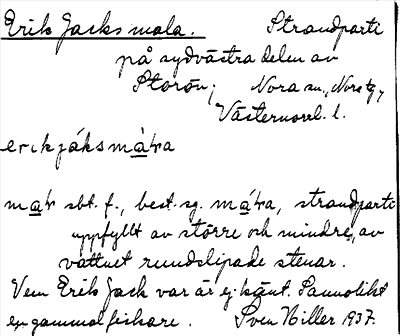 Erik Jacks mala. Strandparti
på sydvästra delen av
Storön; Nora sn, Nora tg,
Västernorrl. l.
erikjáksmára
mar sbt. f., best. sg. mára, strandparti
uppfyllt av större och mindre, av
vattnet rundslipade stenar.
Vem Erik Jack var är ej känt. Sannolikt
en gammal fiskare. Sven Hiller 1937.